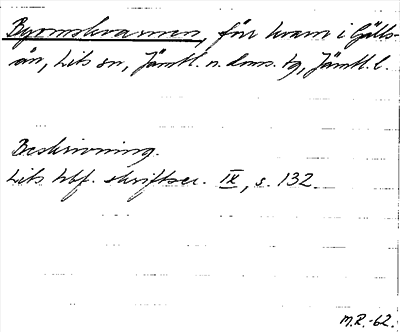 Byomskvarnen, förr kvarn i Gälls-
ån, Lits sn, Jämtl. n. doms. tg, Jämtl. l.
Beskrivning.
Lits hbf. skriftser. IX, s. 132.
M.R.-62.